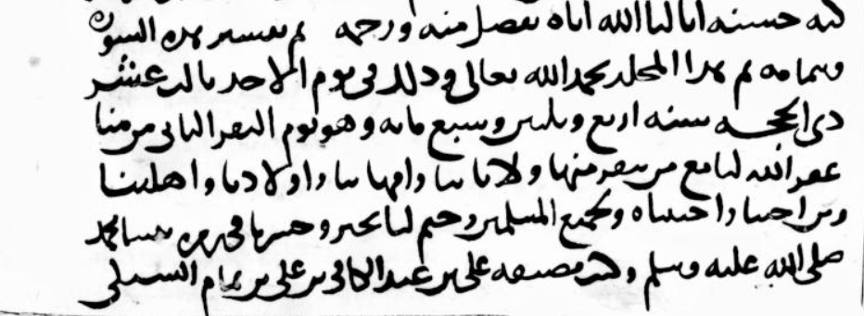 حسنه انالنا الله اياه بفضل منه ورحمه تم تفسير هذه السورة
وبتمامه تم هذا المجلد بحمد الله تعالى وذلك في يوم الاحد ثالث عشر
ذي الحجه سنه اربع وثلثين وسبع مائه وهو يوم النفر الثاني من منا
غفر الله لنا مع من ينفر منها ولابائنا وامهاتنا واولادنا واهلينا
ومن احبنا واحببناه ولجميع المسلمين وختم لنا بخير وحشرنا في نبينا محمد
صلى الله عليه وسلم مصنفه علي بن عبد الكافي بن علي بن تمام السبكي